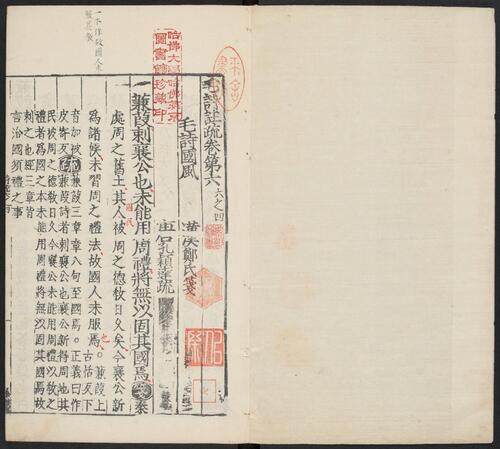 毛詩註疏卷第六 六之四
毛詩國風
漢鄭氏箋
孔穎達疏
蒹葭刺襄公也未能用周禮將無以固其國焉 秦
處周之舊土其人被周之德教日久矣今襄公新
爲諸侯未習周之禮法故國人未服焉。蒹葭上
古恬反下
音加被
蒹葭三章章八句至國焉。正義曰作
蒹葭詩者刺襄公也襄公新得周地其
民被周之德教日久今襄公未能用周禮以教之
禮者爲國之本未能用周禮將無以固其國焉故
刺之也經三章皆
言治國須禮之事
國民
也
哈佛大學哈佛燕京
圖書館珍藏印